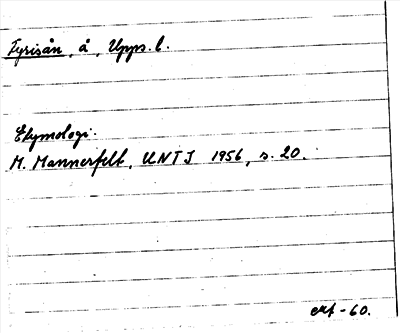 Fyrisån, å, Upps. l.
Etymologi.
M. Mannerfelt, UNTJ 1956, s. 20.
-60.